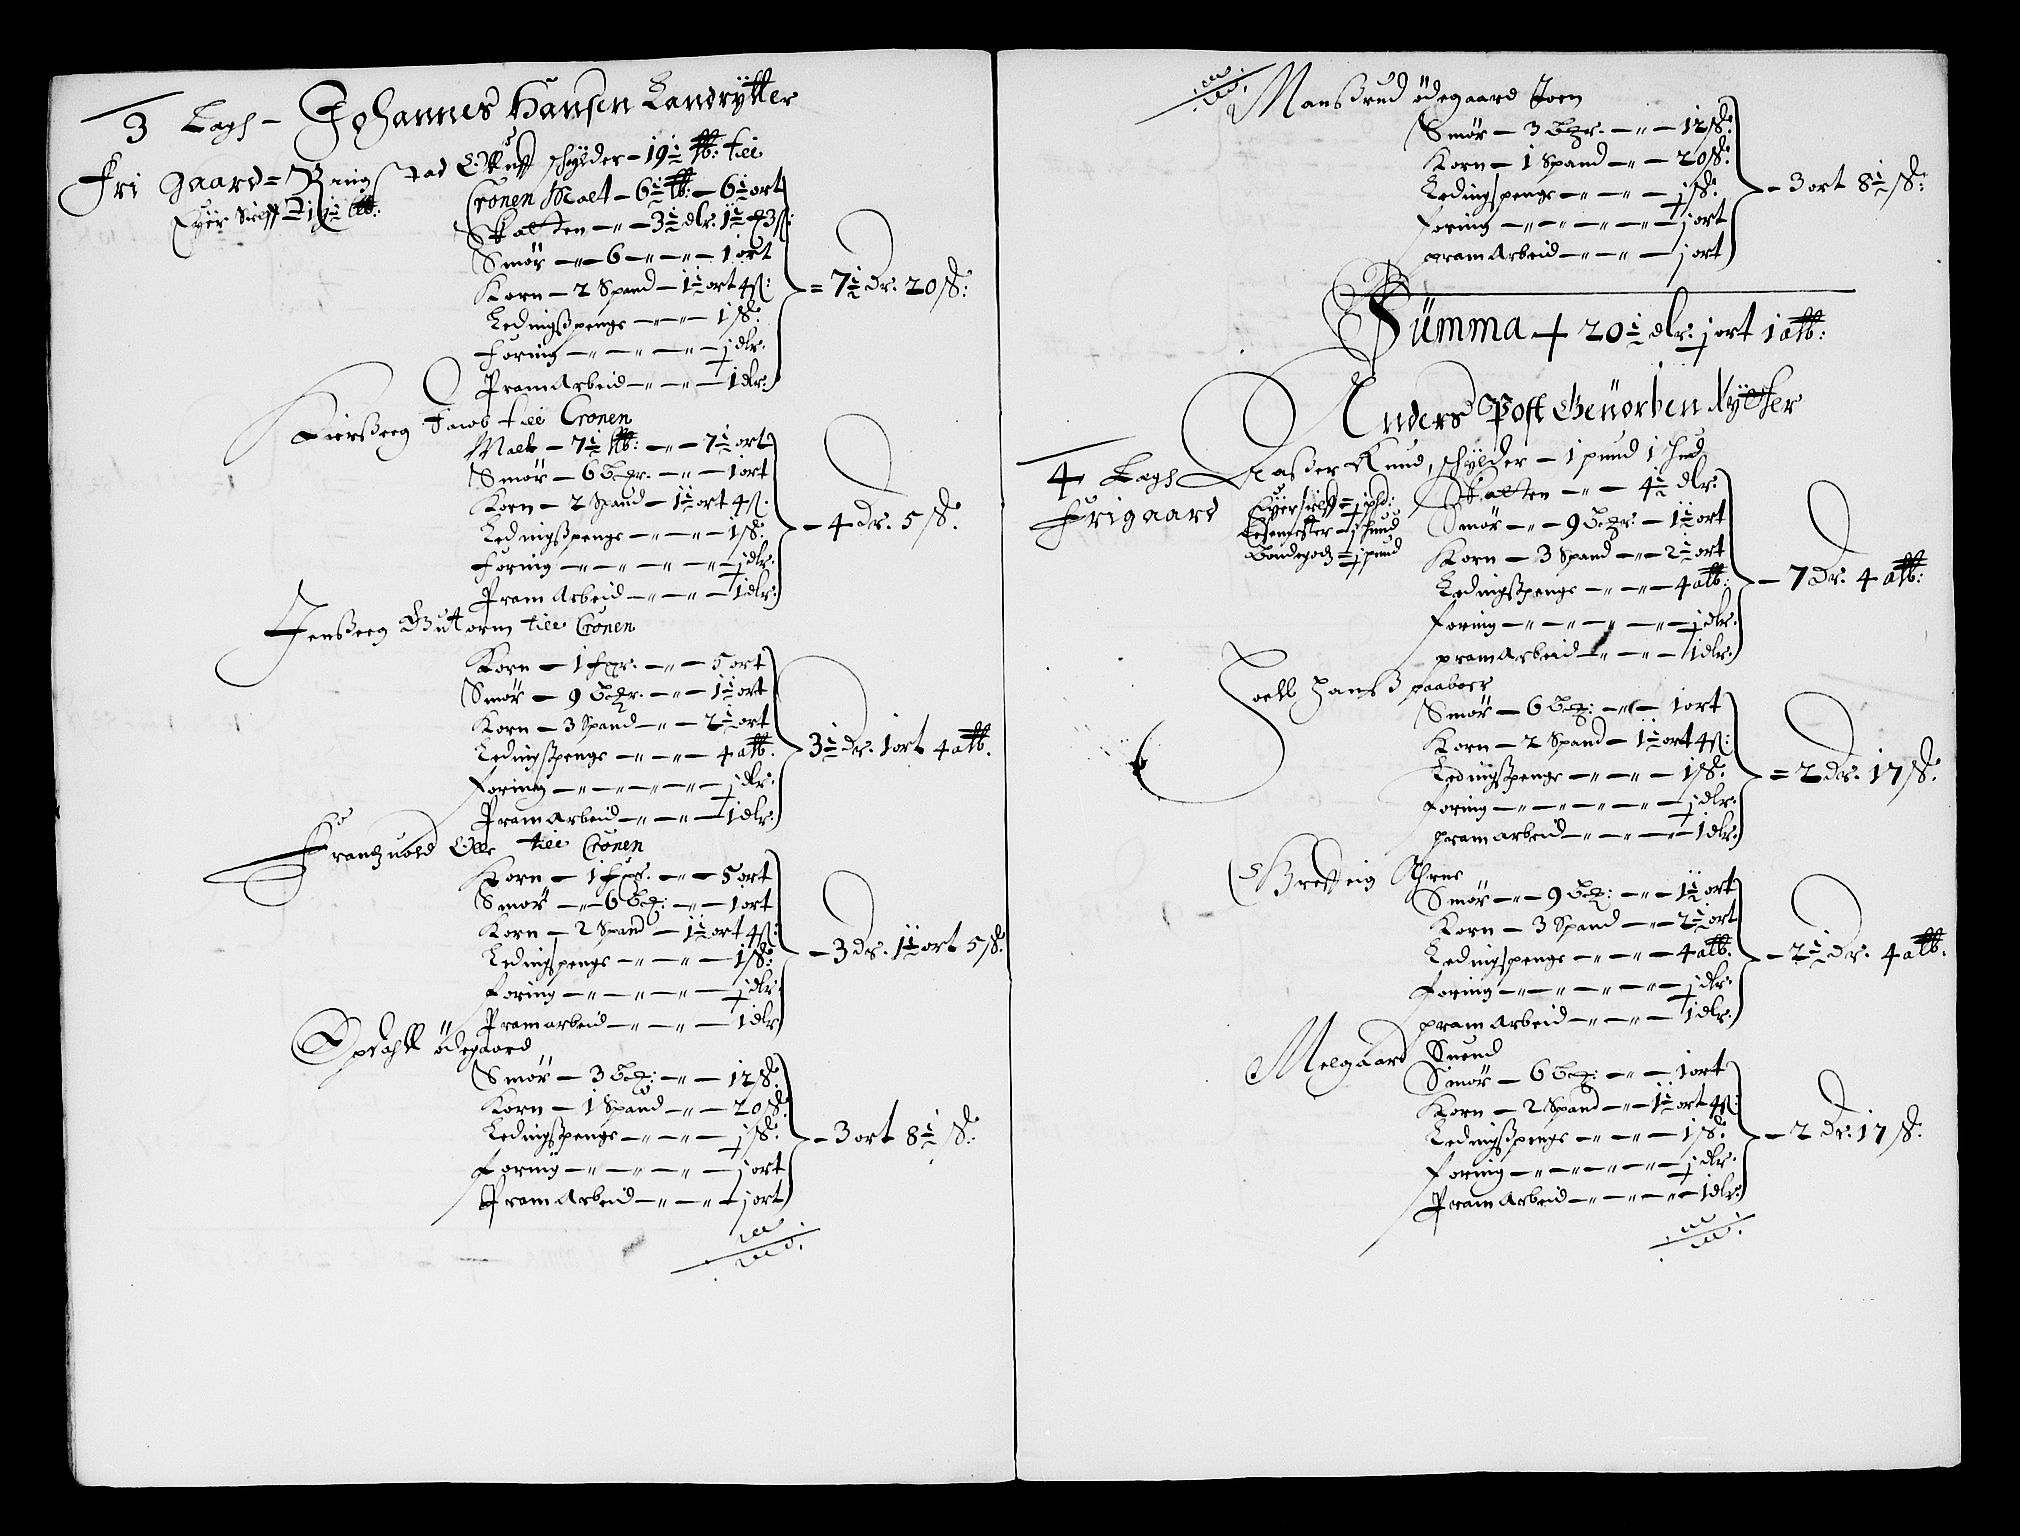 3 Lægh - Johannes Hansen Landrÿtter
Fri gaard = Ringstad schÿlder - 19½ ℔: till
Eÿer Sielff = 19½ ℔:
Cronen Malt - 6½ ℔: - 6½ ort
Skatten - 3½ dlr. 1½ ort 3 ß:
Smør - 6 - 1 ort
Korn - 2 Spand - 1½ ort 4 ß:
Ledingßpenge - 1 ß:
Foring - ½ dlr:
Pram Arbeid - 1 dlr:
= 7½ Dr. 20 ß:
Biersseeg Jacob till Cronen
Malt - 7½ ℔: - 7½ ort
Smør - 6 - 1 ort
Korn - 2 Spand - 1½ ort 4 ß:
Ledingßpenge - 1 ß:
Foring - ½ dlr:
Pram Arbeid - 1 dlr:
- 4 Dr. 5 ß.
Jensseeg Gutorm till Cronen
Korn - 1 fxr. - 5 ort
Smør - 9 - 1½ ort
Korn - 3 Spand - 2½ ort
Ledingßpenge - 4 alb:
Foring - ½ dlr:
Pram Arbeid - 1 dlr:
3½ Dr. 1 ort 4 alb.
Frantzuold Olle till Cronen
Korn - 1 fxr. - 5 ort
Smør - 6 - 1 ort
Korn - 2 Spand - 1½ ort 4 ß:
Ledingspenge - 1 ß:
Foring - ½ dlr:
Pram arbeid - 1 dlr
- 3 Dr. 1½ ort 5 ß.
Opdahll ødegaard
Smør - 3 - 12 ß.
Korn - 1 Spand - 20 ß.
Ledingßpenge - ½ ß.
Foring - ½ ort
Pram Arbeid - ½ ort
- 3 ort 8½ ß.
Manßrud ødegaard Joen
Smør - 3 - 12 ß.
Korn - 1 Spand - 20 ß.
Ledingspenge - ½ ß.
Foring - ½ ort
pram Arbeid - ½ ort
- 3 ort 8½ ß:
Sümma + 20½ dlr: ½ ort 1 alb:
Anders Post Geuorben Rÿtter
4 Lægh - Knud, schÿlder - 1 pund 1 hud
Frigaard
Skatten - 4½ dlr:
Smør - 9 - 1½ ort
Korn - 3 Spand - 2½ ort
Ledingßpenge - 4 alb:
Foring - ½ dlr:
pram Arbeid - 1 dlr:
- 7 Dr. 4 alb:
Joell Hanß paaboer
Smør - 6 - 1 ort
Korn - 2 Spand - 1½ ort 4 ß:
Ledingßpenge - 1 ß.
Foring - ½ dlr:
pram arbeid - 1 dlr:
= 2 Dr. 17 ß.
Bretteig Ahrne
Smør - 9 - 1½ ort
Korn - 3 Spand - 2½ ort
Ledingspenge - 4 alb.
Foring - ½ dlr:
pram Arbeid - 1 dlr:
- 2½ Dr. 4 alb:
Melgaard Suend
Smør - 6 - 1 ort
Korn - 2 Spand - 1½ ort 4 ß:
Ledingßpenge - 1 ß.
Foring - ½ dlr:
Pram Arbeid - 1 dlr:
- 2 Dr. 17 ß.